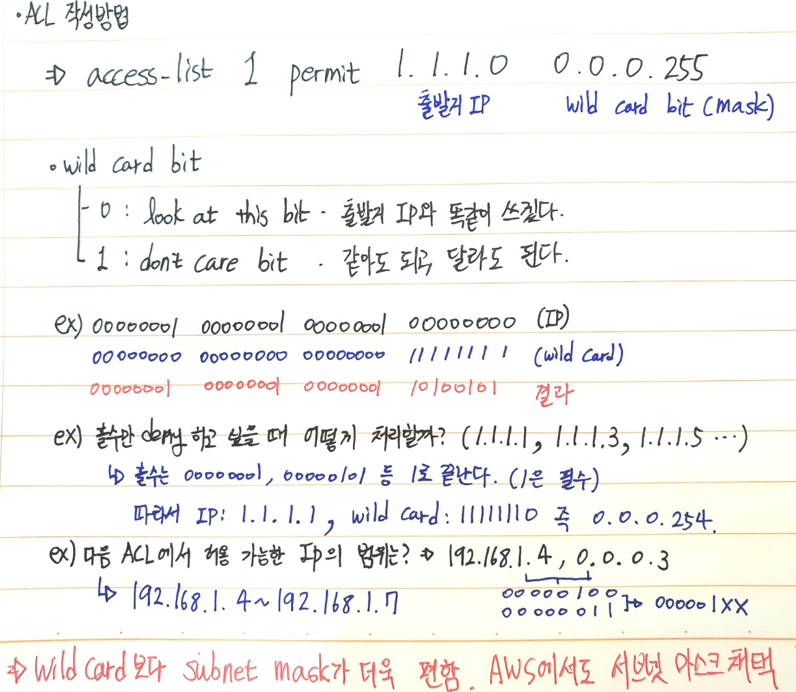 ·ACL 작성방법
⇒ access-list 1 permit 1.1.1.0 0.0.0.255
출발지 IP wild card bit (mask)
·wild card bit
0 : look at this bit · 출발지 IP와 똑같이 쓰겠다.
1 : don't care bit · 같아도 되고 달라도 된다.
ex) 00000001 00000001 00000001 00000000 (IP)
00000000 00000000 00000000 11111111 (wild card)
00000001 00000001 00000001 10100101 결과
ex) 홀수만 deny 하고 싶을 때 어떻게 처리할까? (1.1.1.1, 1.1.1.3, 1.1.1.5 …)
↳ 홀수는 00000001, 00000101 등 1로 끝난다. (1은 필수)
따라서 IP: 1.1.1.1, wild card: 11111110 즉 0.0.0.254.
ex) 다음 ACL에서 허용 가능한 Ip의 범위는? ⇒ 192.168.1.4, 0.0.0.3
↳ 192.168.1.4~192.168.1.7
00000100
00000011 ⇒ 000001XX
⇒ Wild Card 보다 subnet mask가 더욱 편함. AWS에서도 서브넷 마스크 채택